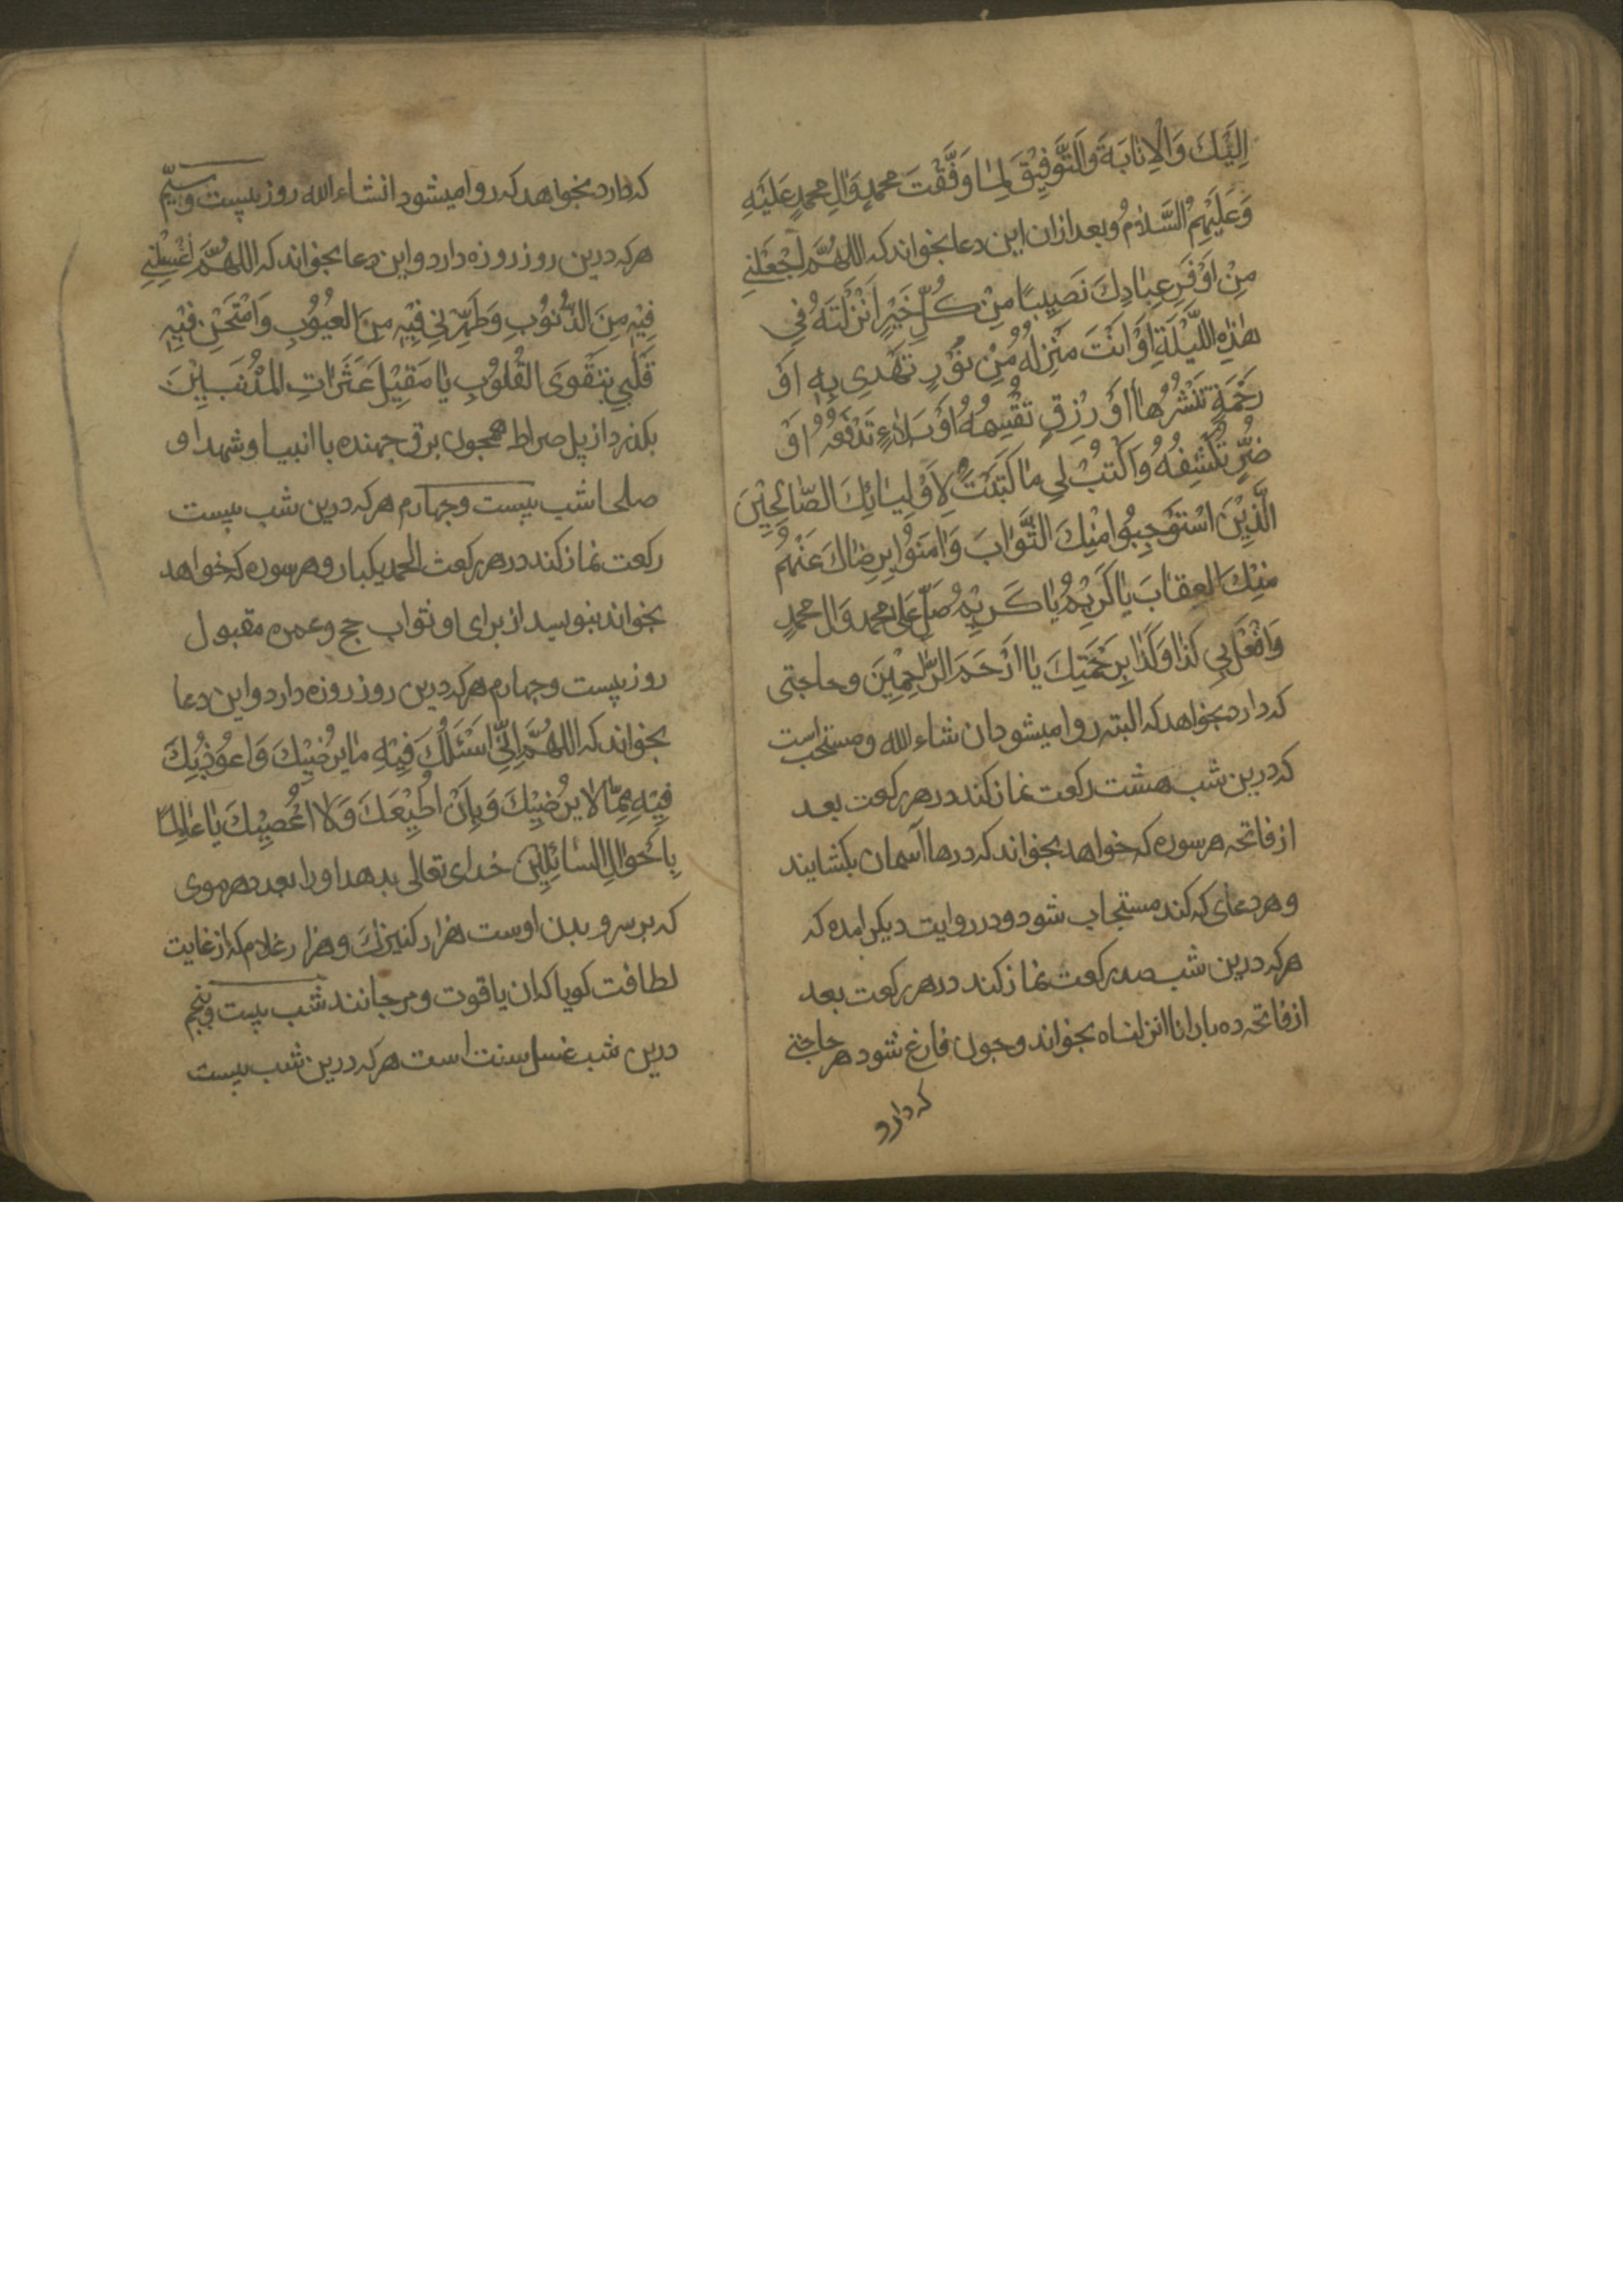 اِلَيْكَ وَالْاِنابَةَ وَالتَّوْفِيْقَ لِمٰا وَفَّقْتَ محمدٍ وَاٰلِ محمدٍ عَلَيْهِ
وَعَلَيْهِمُ السَّلامُ وبعد ازان این دعا بخواند که اللهُمَّ اجْعَلْنِي
مِنْ اَوْفَرِ عِبٰادِكَ نَصِيبًا مِنْ كُلِّ خَيْرٍ اَنْزَلْتَهُ فِي
هٰذِهِ اللَّيْلَةِ اَوْ اَنْتَ مُنْزِلُهُ مِنْ نُوْرٍ تَهْدِي بِهِ اَوْ
رَحْمَةٍ تَنْشُرُهٰا اَوْ رِزْقٍ تَقْسِمُهُ اَوْ بَلٰاءٍ تَدْفَعُهُ اَوْ
ضُرٍّ تَكْشِفُهُ وَاكْتُبْ لِي مٰا كَتَبْتَ لِاَوْلِيٰائِكَ الصّٰالِحِيْنَ
الَّذِيْنَ اسْتَوْجِبُوا مِنْكَ الثَّوٰابَ وَاٰمَنُوْا بِرِضٰاكَ عَنْهُمْ
مِنْكَ العِقابَ يٰا كَرِيْمُ يٰا كَرِيْمُ صَلِّ عَلىٰ محمد وَاٰل محمدٍ
وَافْعَلْ بِي كَذٰا وَكَذٰا بِرَحْمَتِكَ يٰا اَرْحَمَ الرّٰاحِمِيْنَ وحاجتی
که دارد بخواهد که البته روا میشود ان شاء الله ومستحب است
که درین شب هشت رکعت نماز کند در هر رکعت بعد
از فاتحه هر سوره که خواهد بخواند که درها آسمان بکشایند
وهر دعای که کند مستجاب شود ودر روایت دیکر امده که
هر که درین شب صد رکعت نماز کند در هر رکعت بعد
از فاتحه ده بار انا انزلناه بخواند وچون فارغ شود هر حاجتی
که دارد
که دارد بخواهد که روا میشود انشاء الله روز بیست وسیّم
هر که درین روز روزه دارد واین دعا بخواند که اللهُمَّ اغْسِلْنِي
فِيْهِ مِنَ الذُّنُوْبِ وَطَهِّرْنِي فِيْهِ مِنَ العُيُوْبِ وَامْتَحِنْ فِيْهِ
قَلْبِي بِتَقْوَى القُلُوْبِ يٰا مُقِيْلَ عَثَرٰاتِ المُذْنِبِيْنَ
بکذرد از پل صراط همچون برق جهنده با انبیا وشهدا و
صلحا شب بیست وچهارم هر که درین شب بیست
رکعت نماز کند در هر رکعت الحمد یکبار وهر سوره که خواهد
بخواند بنویسد از برای او ثواب حج وعمره مقبول
روز بیست وچهارم هر که درین روز روزه دارد واین دعا
بخواند که اللهُمَّ اِنِّي اَسْئَلُكَ فِيْهِ مٰا يُرْضِيْكَ وَاَعُوْذُبِكَ
فِيْهِ مِمّٰا لا يُرْضِيْكَ وَبِاَنْ اُطِيْعَكَ وَلا اَعْصِيْكَ يٰا عٰالِمًا
بِاَحْوٰالِ السّٰائِلِيْنَ خدای تعالی بدهد او را بعدد هر موی
که بر سر وبدن اوست هزار کنیزك وهزار غلام که از غایت
لطافت کویا که ان یاقوت ومرجانند شب بیست وپنجم
درین شب غسل سنت است هر که درین شب بیست